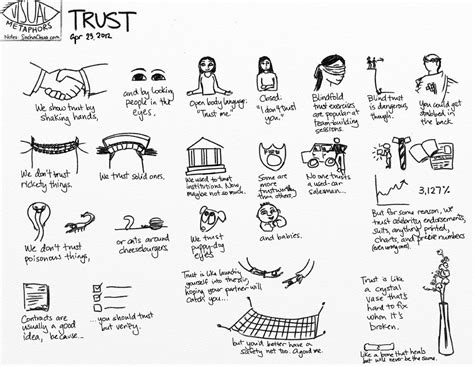 VISUAL
METAPHORS
Notes: SachaChua.com
TRUST
Apr 23, 2012
We show trust by
shaking hands,
and by looking
people in the
eyes.
Open body language:
"Trust me."
Closed:
"I don't
trust
you."
Blindfold
trust exercises
are popular at
team-building
sessions.
Blind trust
is dangerous,
though.
You could get
stabbed in
the back.
We don't trust
rickety things.
We trust solid ones.
We used to trust
institutions. Now,
maybe not so much.
Some are
more
trustworthy
than others...
No one trusts
a used-car
salesman...
3,127%
But for some reason, we
trust celebrity endorsements,
suits, anything printed,
charts, and precise numbers
(even wrong ones).
We don't trust
poisonous things,
or cats around
cheeseburgers.
We trust
puppy-dog
eyes
and babies.
Contracts are
usually a good
idea, because...
...you should trust
but verify.
Trust is like launching
yourself into the sky,
hoping your partner will
catch you...
but you'd better have a
safety net too. A good one.
Trust is like
a crystal
vase that's
hard to
fix when
it's
broken.
like a bone that heals
but might be weak